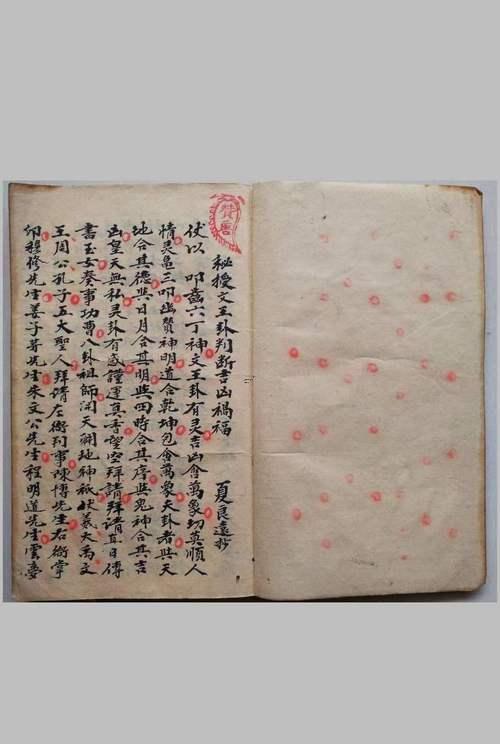 秘授文王卦判断吉凶祸福
夏良遠抄
伏以 叩齒六丁神文王卦有灵吉凶會萬象切莫順人
情灵龜三叩幽贊神明道合乾坤包含萬象夫卦者與天
地合其德與日月合其明與四時合其序與鬼神合其吉
凶皇天無私灵卦有感謹運真香望空拜請拜請直日傳
書玉女癸事功曹八卦祖師開天闢地神祇伏羲大禹文
王周公孔子五大聖人拜請左衙判事陳摶先生右衙掌
印穆修先生姜子牙先生朱文公先生程明道先生雲夢